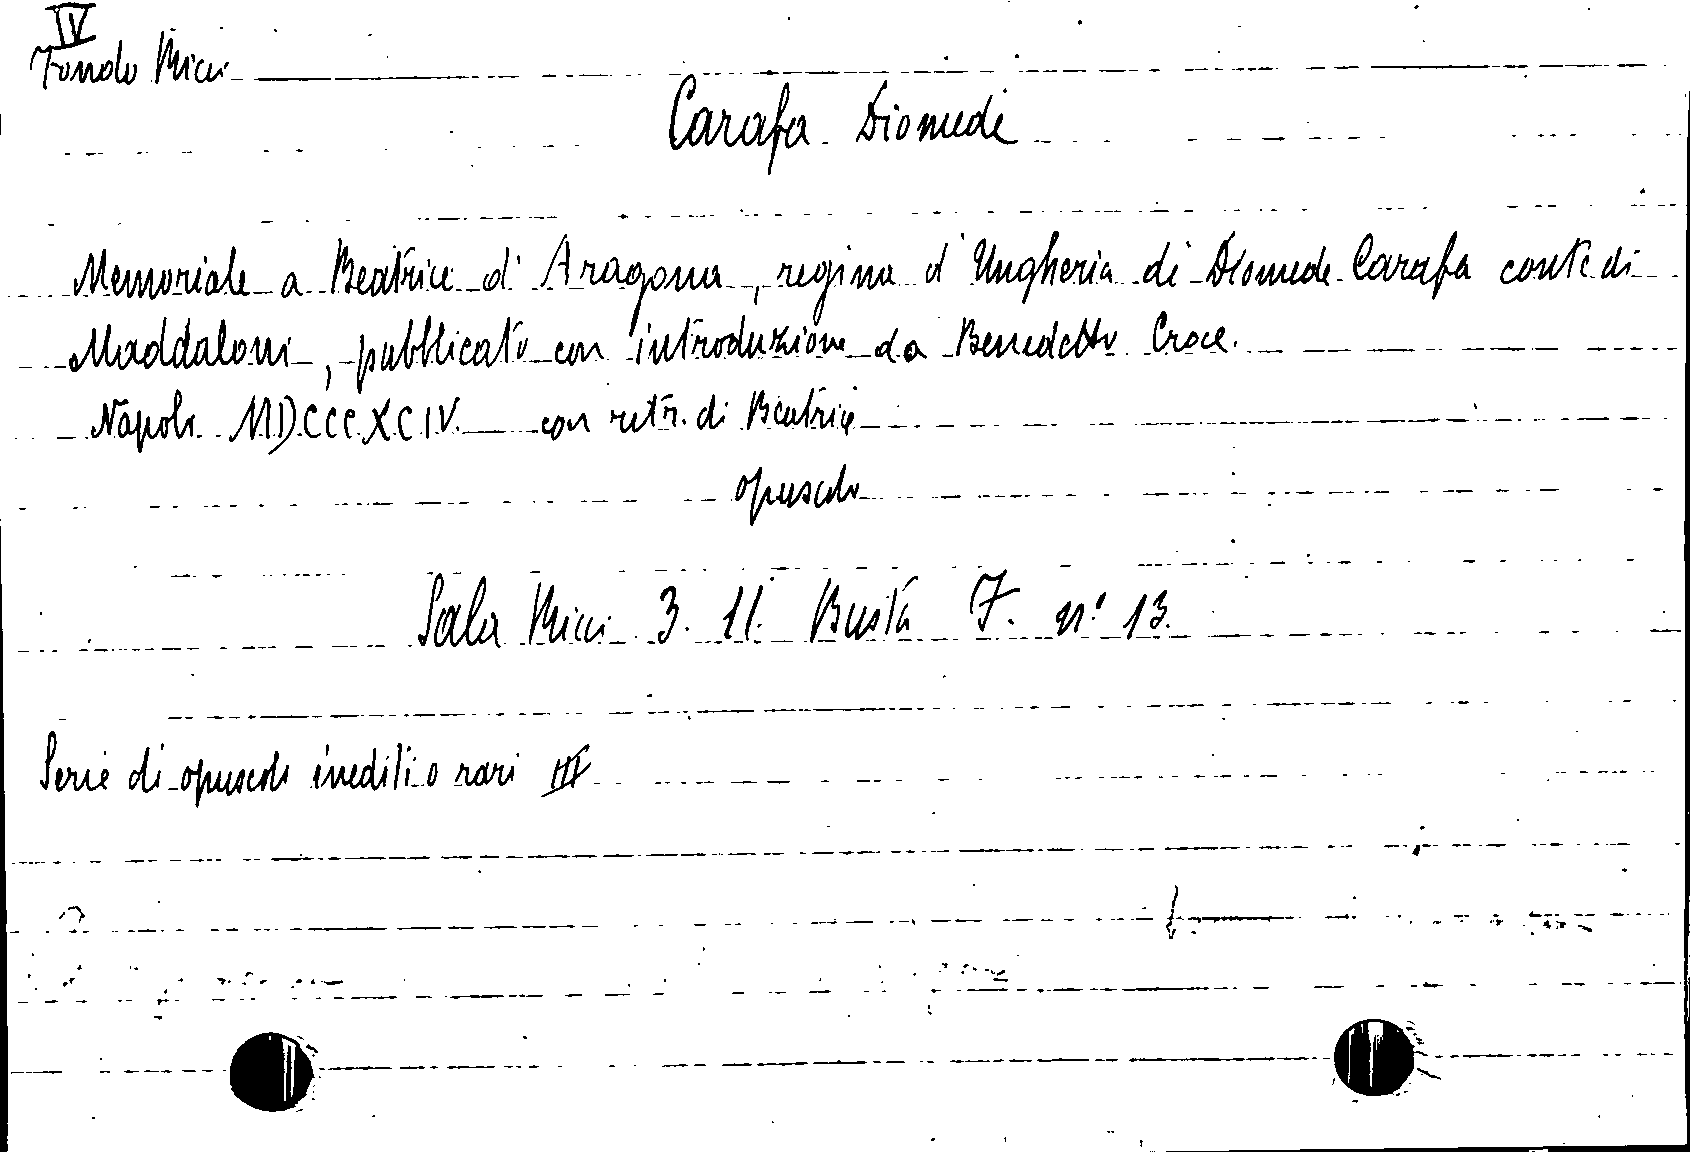 IV
Fondo Ricci
Carafa Diomede
Memoriale a Beatrice d'Aragona, regina d'Ungheria di Diomede Carafa conte di
Maddaloni, pubblicato con introduzione da Benedetto Croce.
Napoli MDCCCXCIV. con retr. di Beatrice
opuscolo
Sala Ricci 3. 11. Busta 7. n° 13.
Serie di opuscoli inediti o rari III